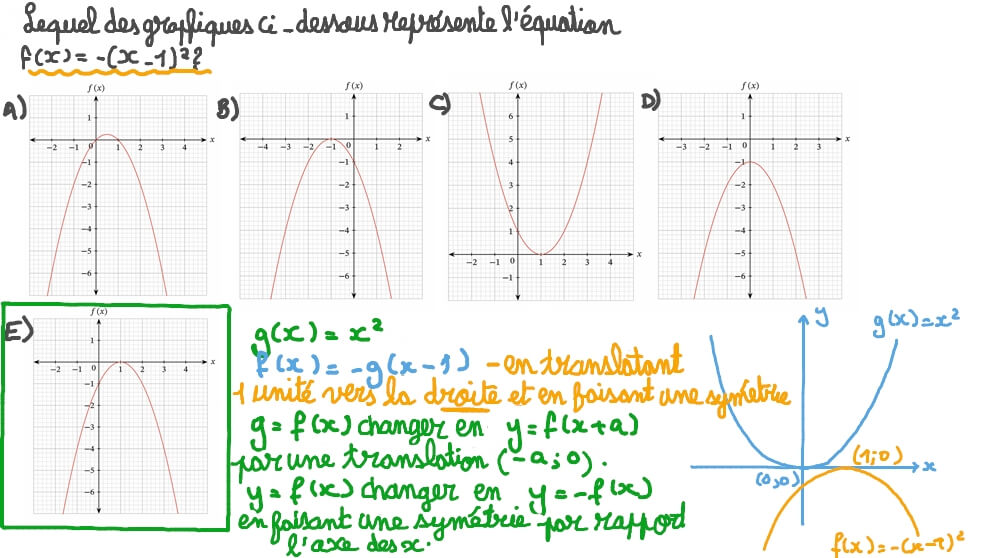 Lequel des graphiques ci-dessous représente l'équation
f(x) = -(x-1)²?
A)
f(x)
1
x
-2 -1 0 1 2 3 4
-1
-2
-3
-4
-5
-6
B)
f(x)
1
x
-4 -3 -2 -1 0 1 2
-1
-2
-3
-4
-5
-6
C)
f(x)
6
5
4
3
2
1
x
-2 -1 0 1 2 3 4
-1
D)
f(x)
1
x
-3 -2 -1 0 1 2 3
-1
-2
-3
-4
-5
-6
E)
f(x)
1
x
-2 -1 0 1 2 3 4
-1
-2
-3
-4
-5
-6
g(x) = x²
f(x) = -g(x-1) - en translatant
1 unité vers la droite et en faisant une symétrie
y = f(x) changer en y = f(x+a)
par une translation (-a;0).
y = f(x) changer en y = -f(x)
en faisant une symétrie par rapport
l'axe des x.
y
g(x) = x²
(1;0)
x
(0;0)
f(x) = -(x-1)²